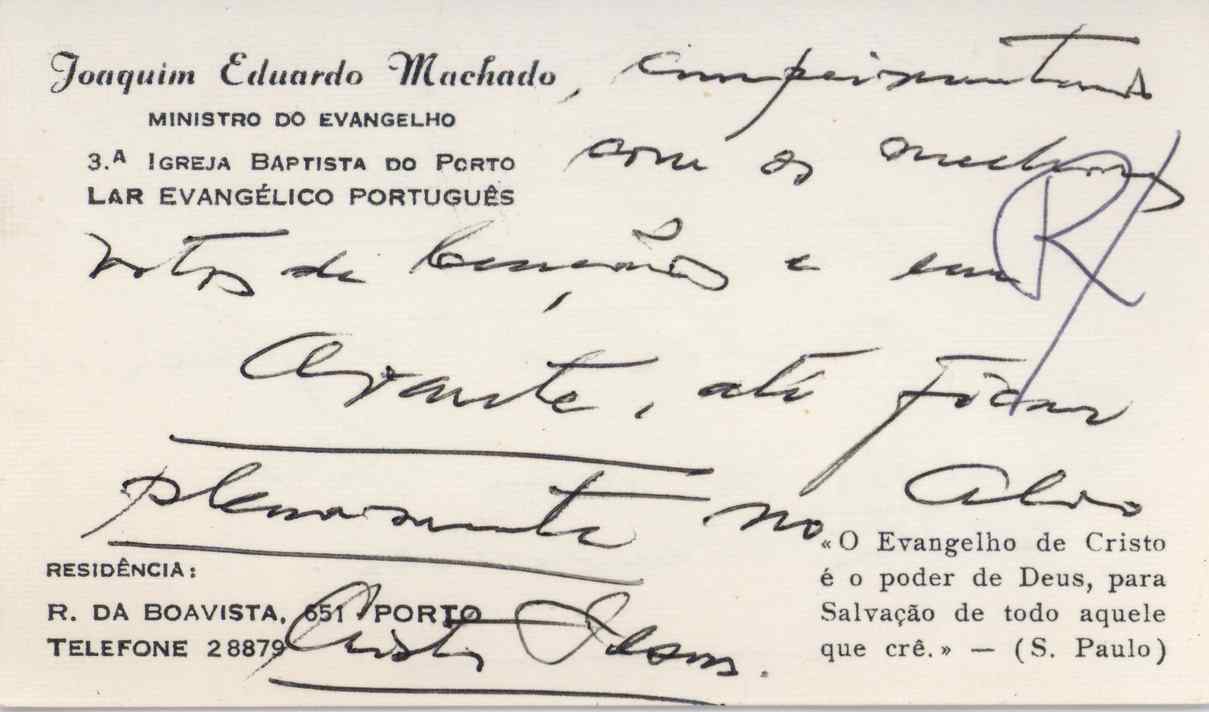 Joaquim Eduardo Machado, cumprimenta
MINISTRO DO EVANGELHO
3.ª IGREJA BAPTISTA DO PORTO
LAR EVANGÉLICO PORTUGUÊS
com os melhores
votos de bençãos e um
Avante, até ficar
plenamente no Alvo
Cristo Jesus.
RESIDÊNCIA:
R. DA BOAVISTA, 651 PORTO
TELEFONE 28879
«O Evangelho de Cristo
é o poder de Deus, para
Salvação de todo aquele
que crê.» — (S. Paulo)
R